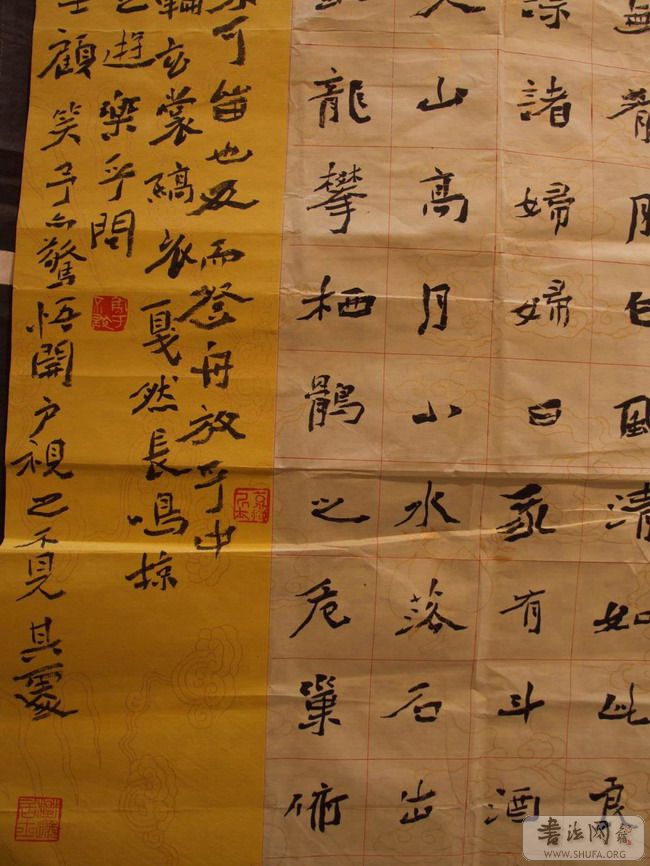 肴月白風清如此良
諸婦婦曰我有斗酒
山高月小水落石出
龍攀栖鶻之危巢俯
可留也反而登舟放乎中
輪玄裳縞衣戛然長鳴掠
之遊樂乎問
士顧笑予亦驚悟開户視之不見其處
書法网
WWW.SHUFA.ORG